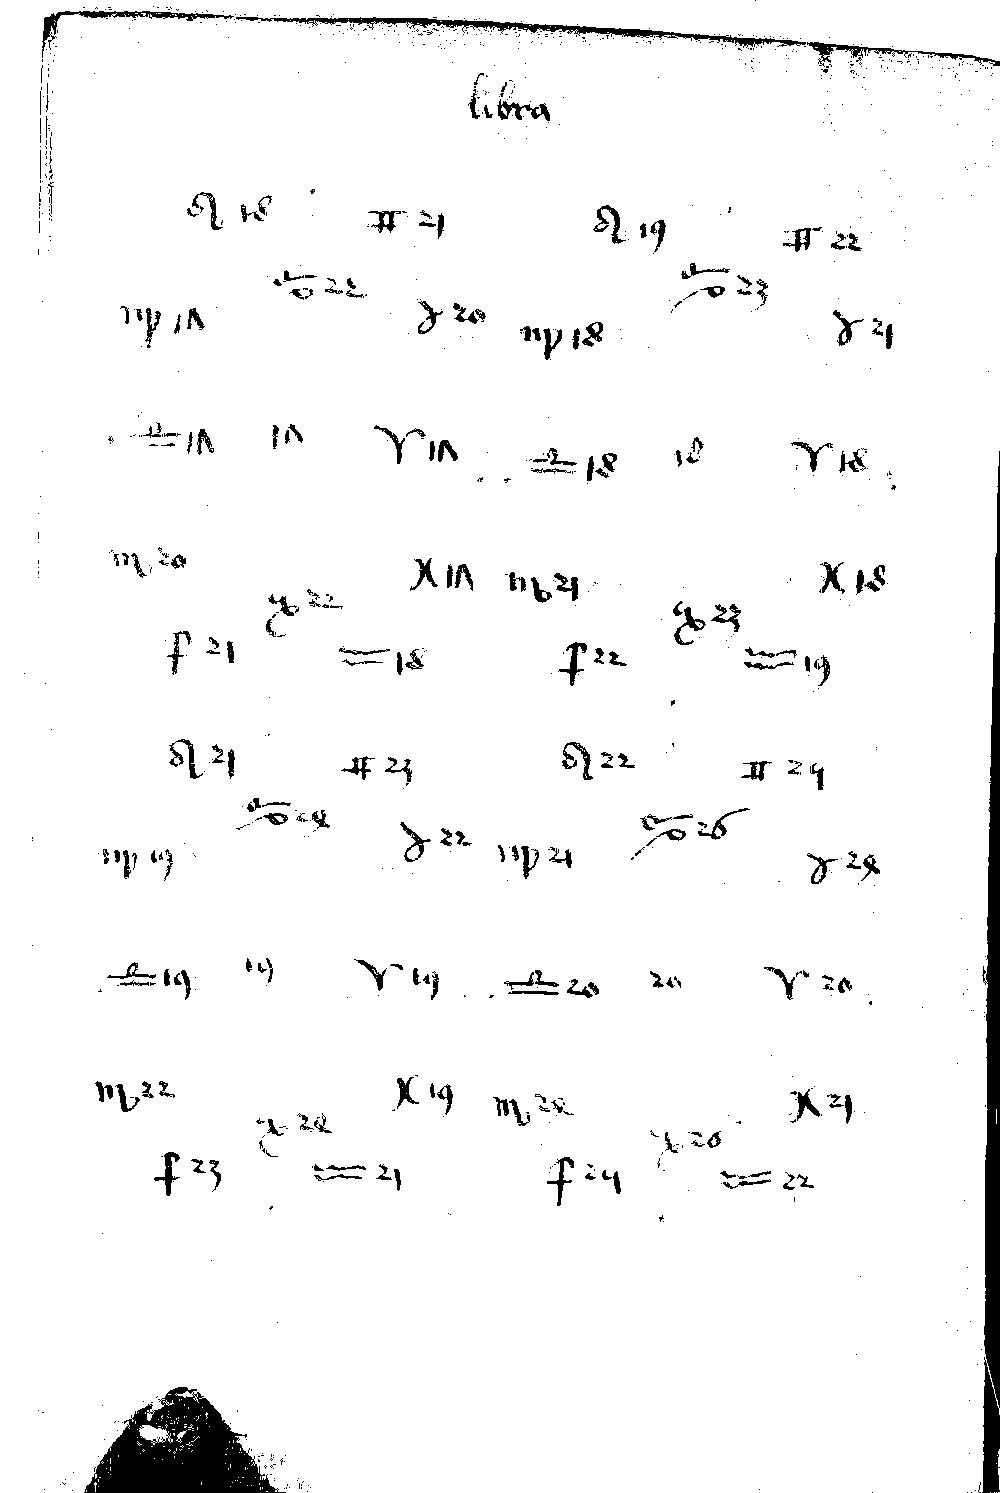 libra
♌ 18 ♊ 21 ♌ 19 ♊ 22
♋ 22 ♋ 23
♍ 17 ♉ 20 ♍ 18 ♉ 21
♎ 17 17 ♈ 17 ♎ 18 18 ♈ 18
♏ 20 ♓ 17 ♏ 21 ♓ 18
♑ 22 ♑ 23
♐ 21 ♒ 18 ♐ 22 ♒ 19
♌ 21 ♊ 23 ♌ 22 ♊ 25
♋ 24 ♋ 26
♍ 19 ♉ 22 ♍ 21 ♉ 24
♎ 19 19 ♈ 19 ♎ 20 20 ♈ 20
♏ 22 ♓ 19 ♏ 24 ♓ 21
♑ 24 ♑ 26
♐ 23 ♒ 21 ♐ 25 ♒ 22